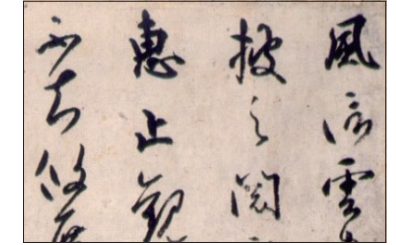 風信雲
披之閱
惠止觀
不知攸